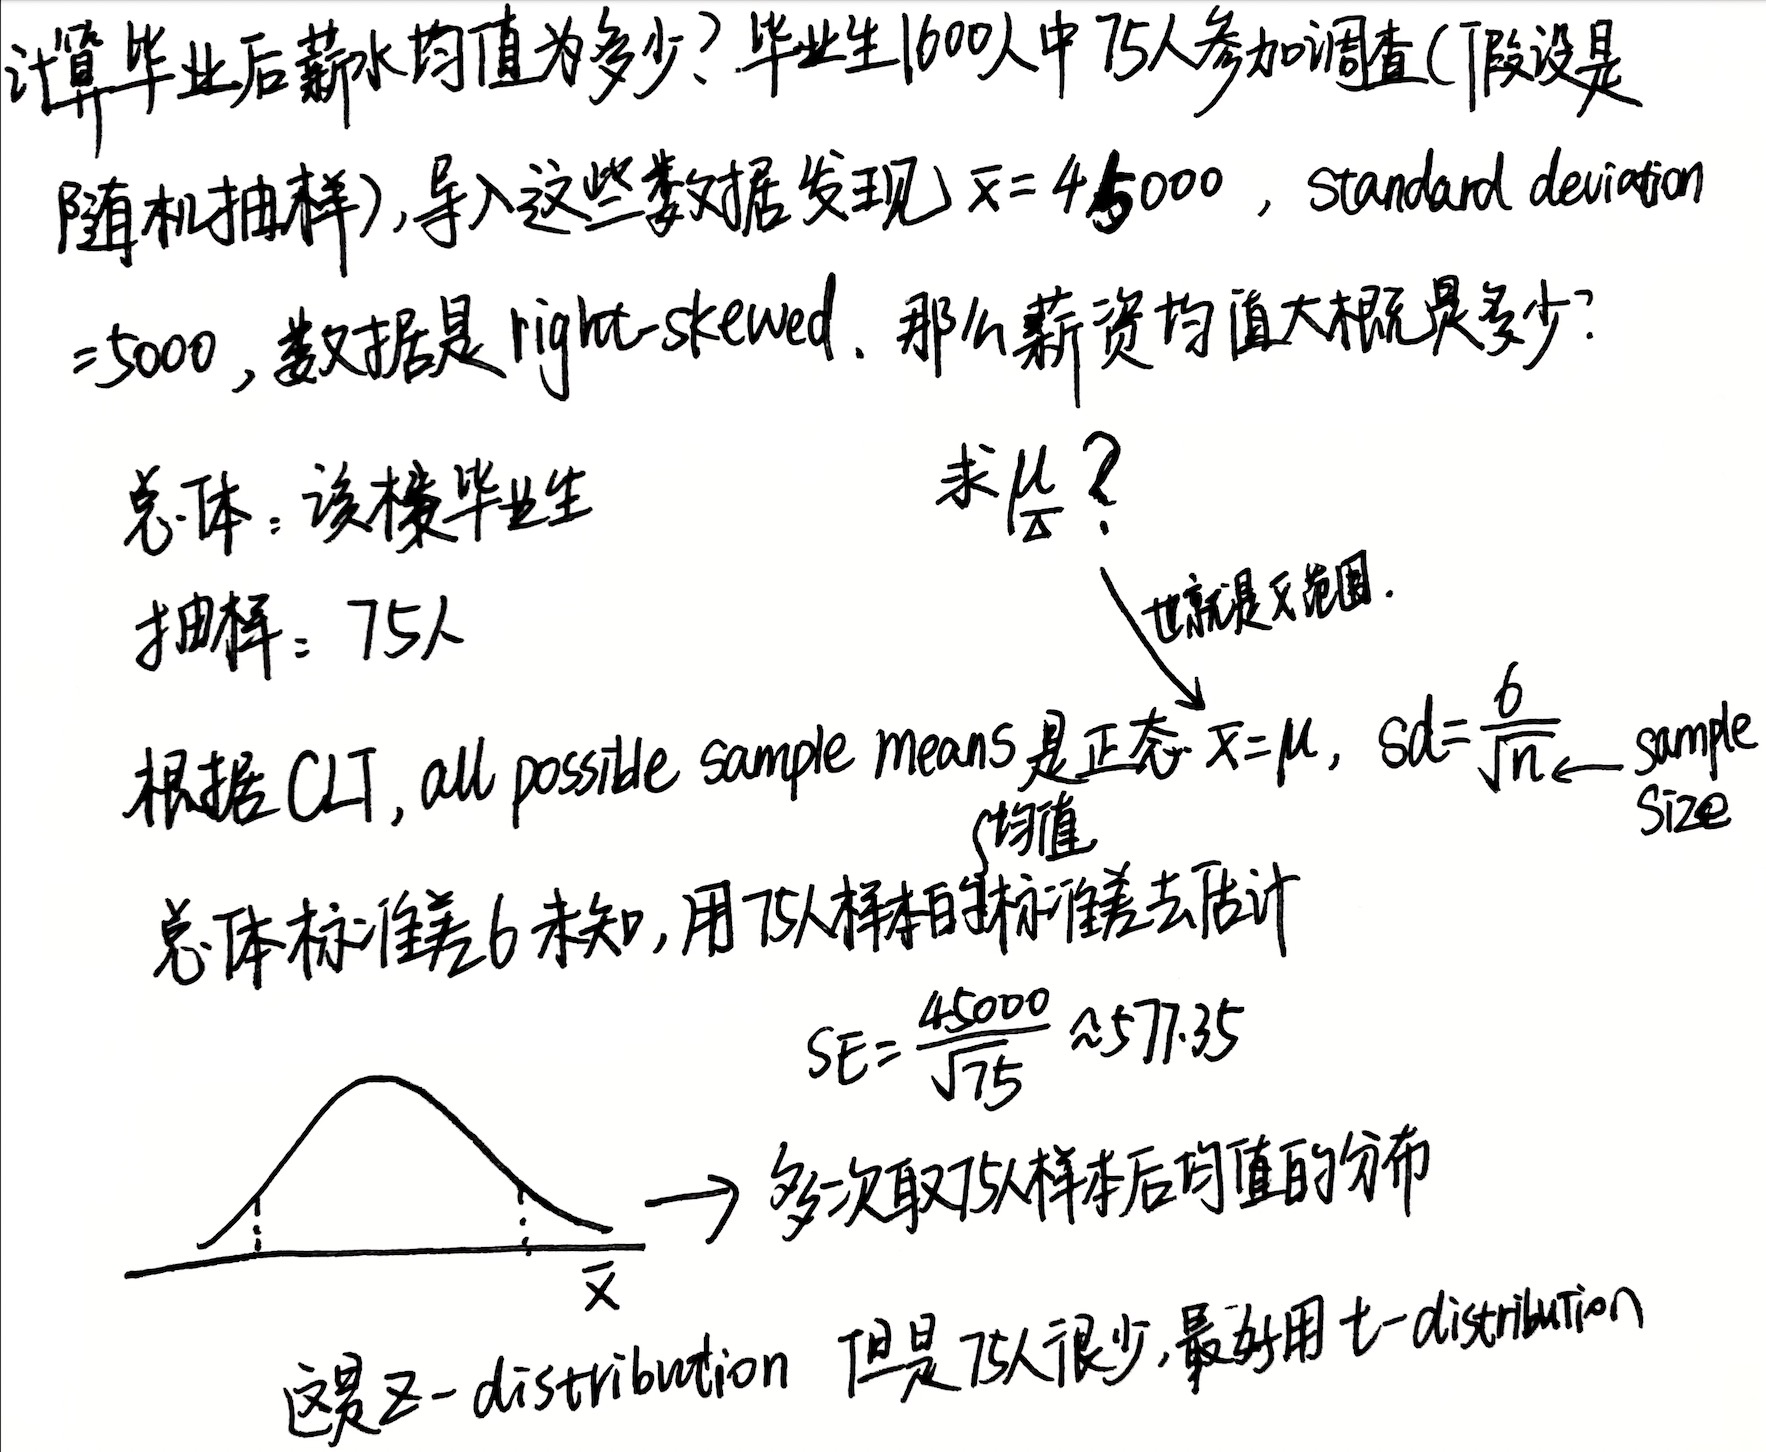 计算毕业后薪水均值为多少？毕业生1600人中75人参加调查（假设是
随机抽样），导入这些数据发现 x̄=45000，standard deviation
=5000，数据是right-skewed．那么薪资均值大概是多少？
总体：该校毕业生
求μ？
抽样：75人
也就是x̄范围．
根据CLT，all possible sample means是正态 x̄=μ，sd=6/√n ← sample size
均值
总体标准差6未知，用75人样本的标准差去估计
SE=45000/√75≈577.35
→ 多次取75人样本后均值的分布
x̄
这是z-distribution 但是75人很少，最好用t-distribution